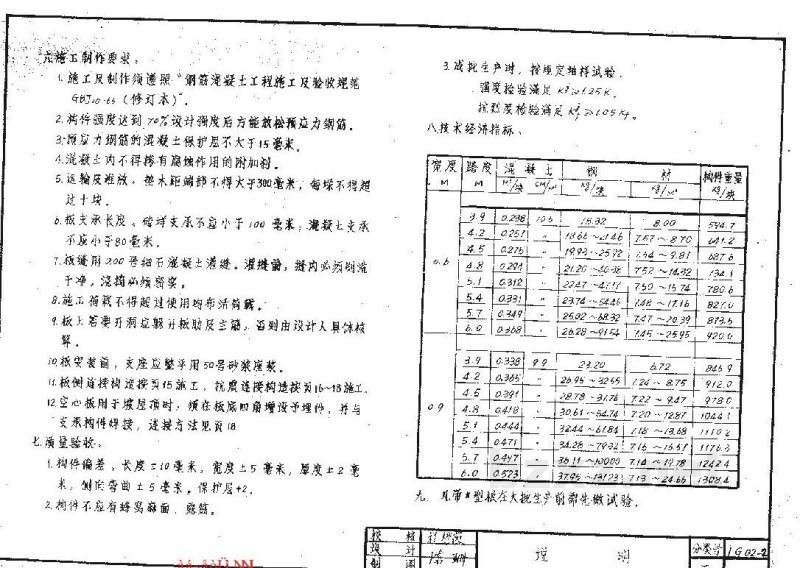 六.施工制作要求:
1.施工及制作须遵照"钢筋混凝土工程施工及验收规范
GBJ10-65(修订本)"。
2.构件强度达到70%设计强度后方能放松预应力钢筋。
3.预应力钢筋的混凝土保护层不大于15毫米。
4.混凝土内不得掺有腐蚀作用的附加剂。
5.运输及堆放,垫木距端部不得大于300毫米,每垛不得超
过十块。
6.板支承长度、砖砌支承不应小于100毫米,混凝土支承
不应小于80毫米。
7.板缝用200号细石混凝土灌缝。灌缝前,缝内必须刷洗
干净,浇捣必须密实。
8.施工荷载不得超过使用均布活荷载。
9.板上若要开洞应躲开板肋及主筋,否则由设计人具体核
算。
10.板安装前,支座应整平用50号砂浆座浆。
11.板侧连接构造按页15施工,抗震连接构造按页16~18施工。
12.空心板用于坡屋顶时,须在板底四角增设予埋件,并与
支承构件焊接,连接方法见页18
七.质量验收:
1.构件偏差,长度±10毫米,宽度±5毫米,厚度±2毫
米,侧向弯曲±5毫米。保护层+2.
2.构件不应有蜂窝麻面、露筋。
3.成批生产时,按规定抽样试验.
强度检验满足
抗裂度检验满足
八.技术经济指标.
宽度 跨度 混凝土 钢材 构件重量
M M M³/块 CM/M² Kg/块 Kg/M² Kg/块
0.6
3.9 0.238 10.5 15.32 8.00 594.7
4.2 0.251 " 18.66~21.46 7.57~8.70 641.2
4.5 0.275 " 19.93~25.92 7.54~9.81 687.6
4.8 0.294 " 7.52~14.32 734.1
5.1 0.312 " 22.47~47.17 7.50~15.74 780.6
5.4 0.331 " 23.74~54.46 7.48~17.16 827.0
5.7 0.349 " 25.02~68.32 7.47~20.39 873.5
6.0 0.368 " 26.28~91.54 7.45~25.95 920.0
0.9
3.9 0.338 9.9 23.20 6.72 845.9
4.2 0.365 " 26.95~32.55 7.24~8.75 912.0
4.5 0.391 " 28.78~37.76 7.22~9.47 978.0
4.8 0.418 " 30.61~54.74 7.20~12.87 1044.1
5.1 0.444 " 32.44~61.84 7.18~13.68 1110.2
5.4 0.471 " 34.28~79.32 7.16~16.57 1176.3
5.7 0.497 " 36.11~100.00 7.14~19.78 1242.4
6.0 0.523 " 37.95~131.23 7.13~24.66 1308.4
九. 凡带*型板在大批生产前都先做试验.
校核
设计
制图
说明
分类号 LG02-2